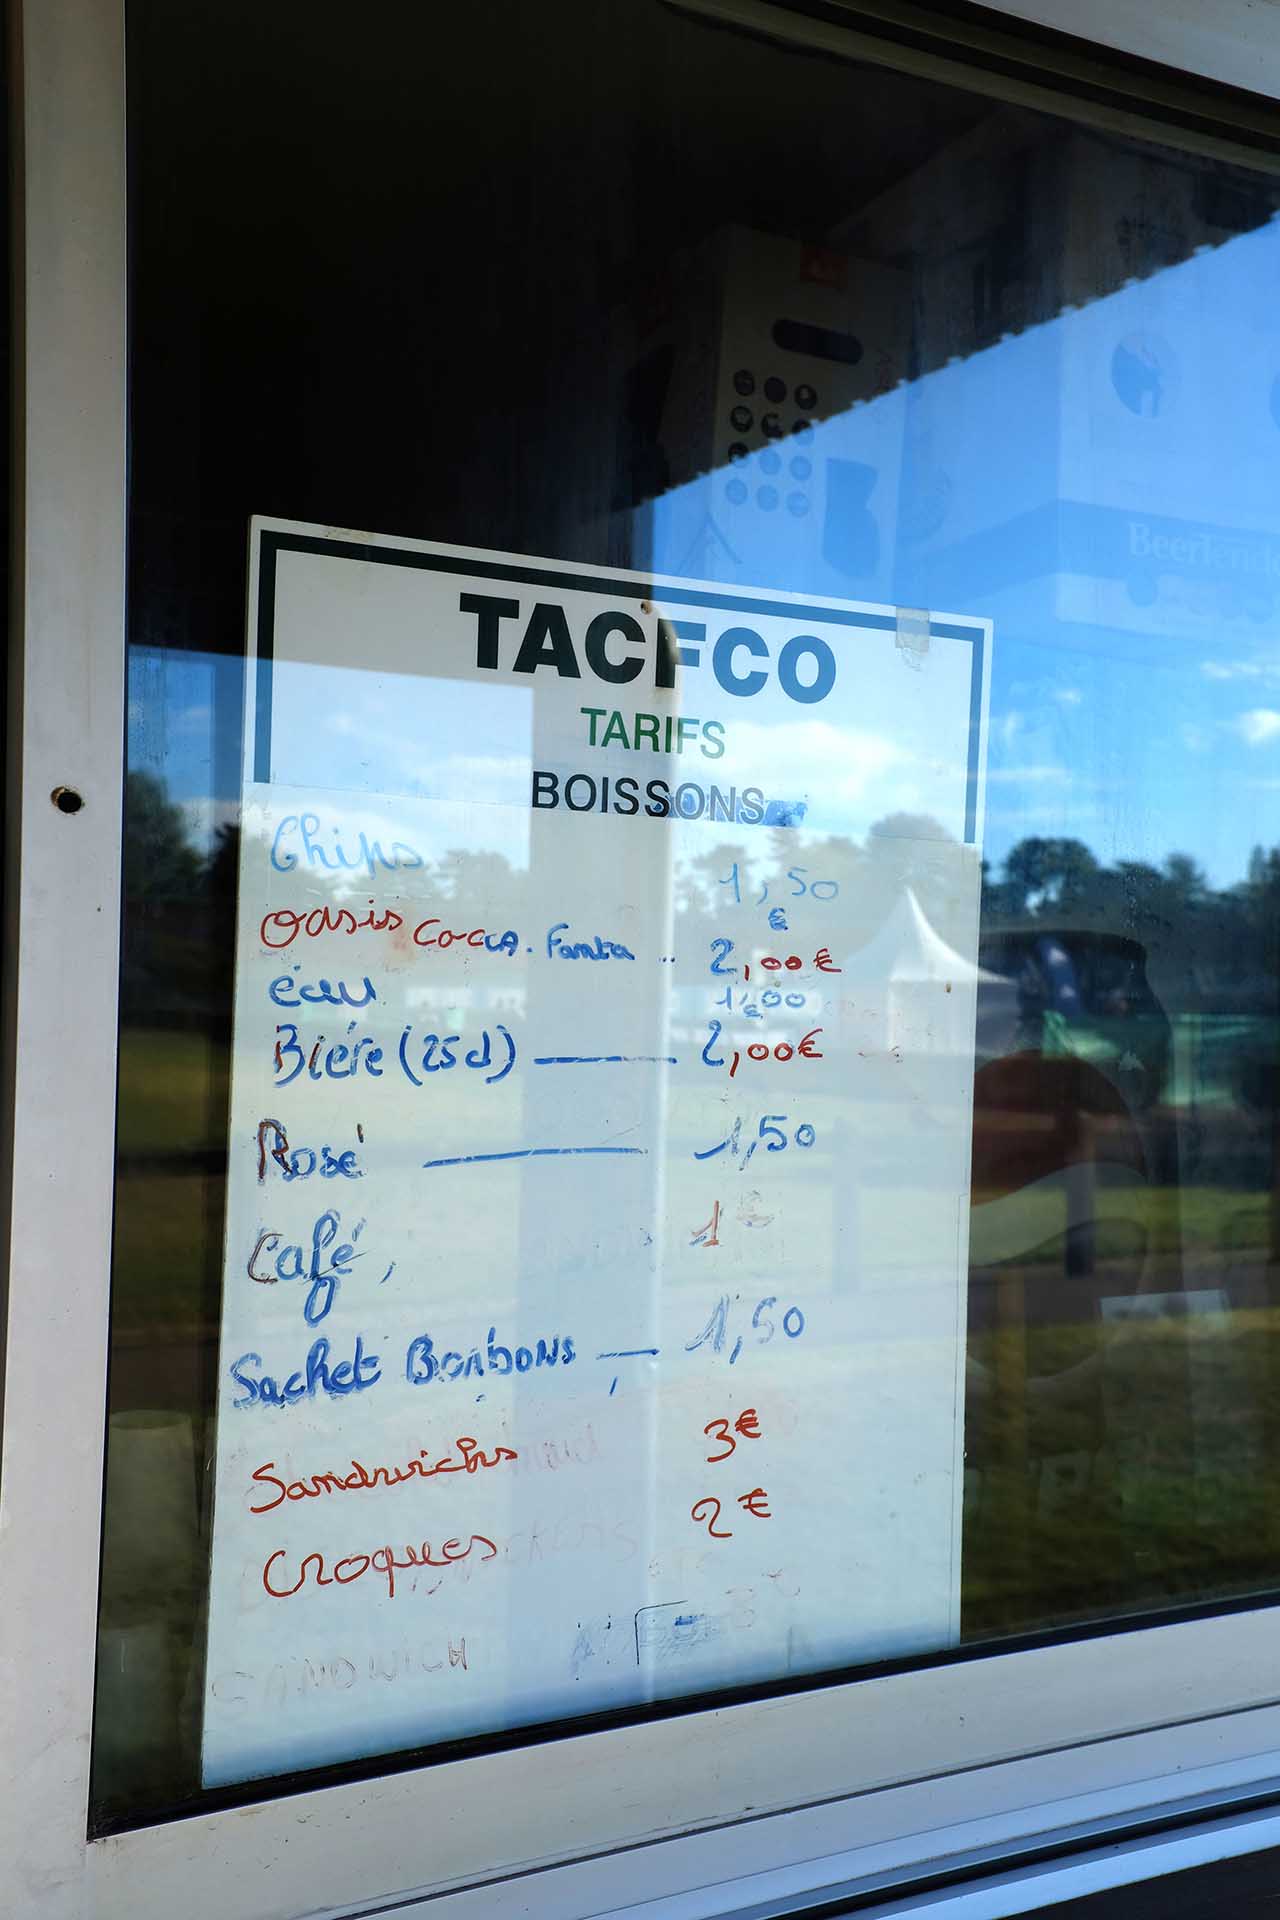 Beerlende
TACFCO
TARIFS
BOISSONS
Chips 1,50 €
Oasis Coca. Fanta .. 2,00 €
éau 1,00 €
Bière (25cl) 2,00 €
Rosé 1,50
Café, 1 €
Sachet Bonbons 1,50
Sandwichs 3 €
Croques 2 €
SANDWICH